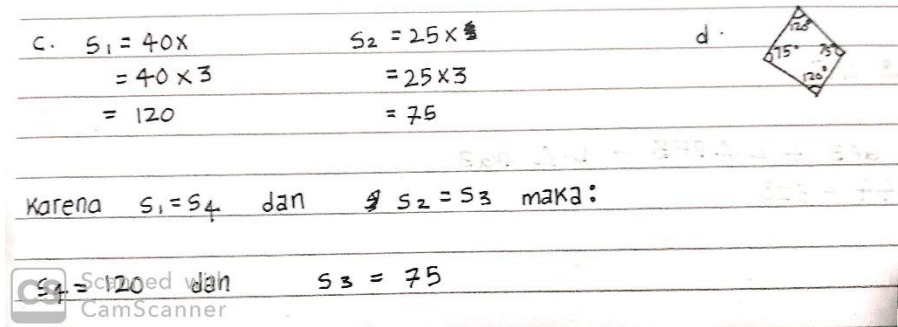 c. S₁ = 40x S₂ = 25x d.
= 40 x 3 = 25x3
= 120 = 75
120° 75° 75° 120°
Karena S₁ = S₄ dan S₂ = S₃ maka:
S₄ = 120 dan S₃ = 75
CS Scanned with CamScanner